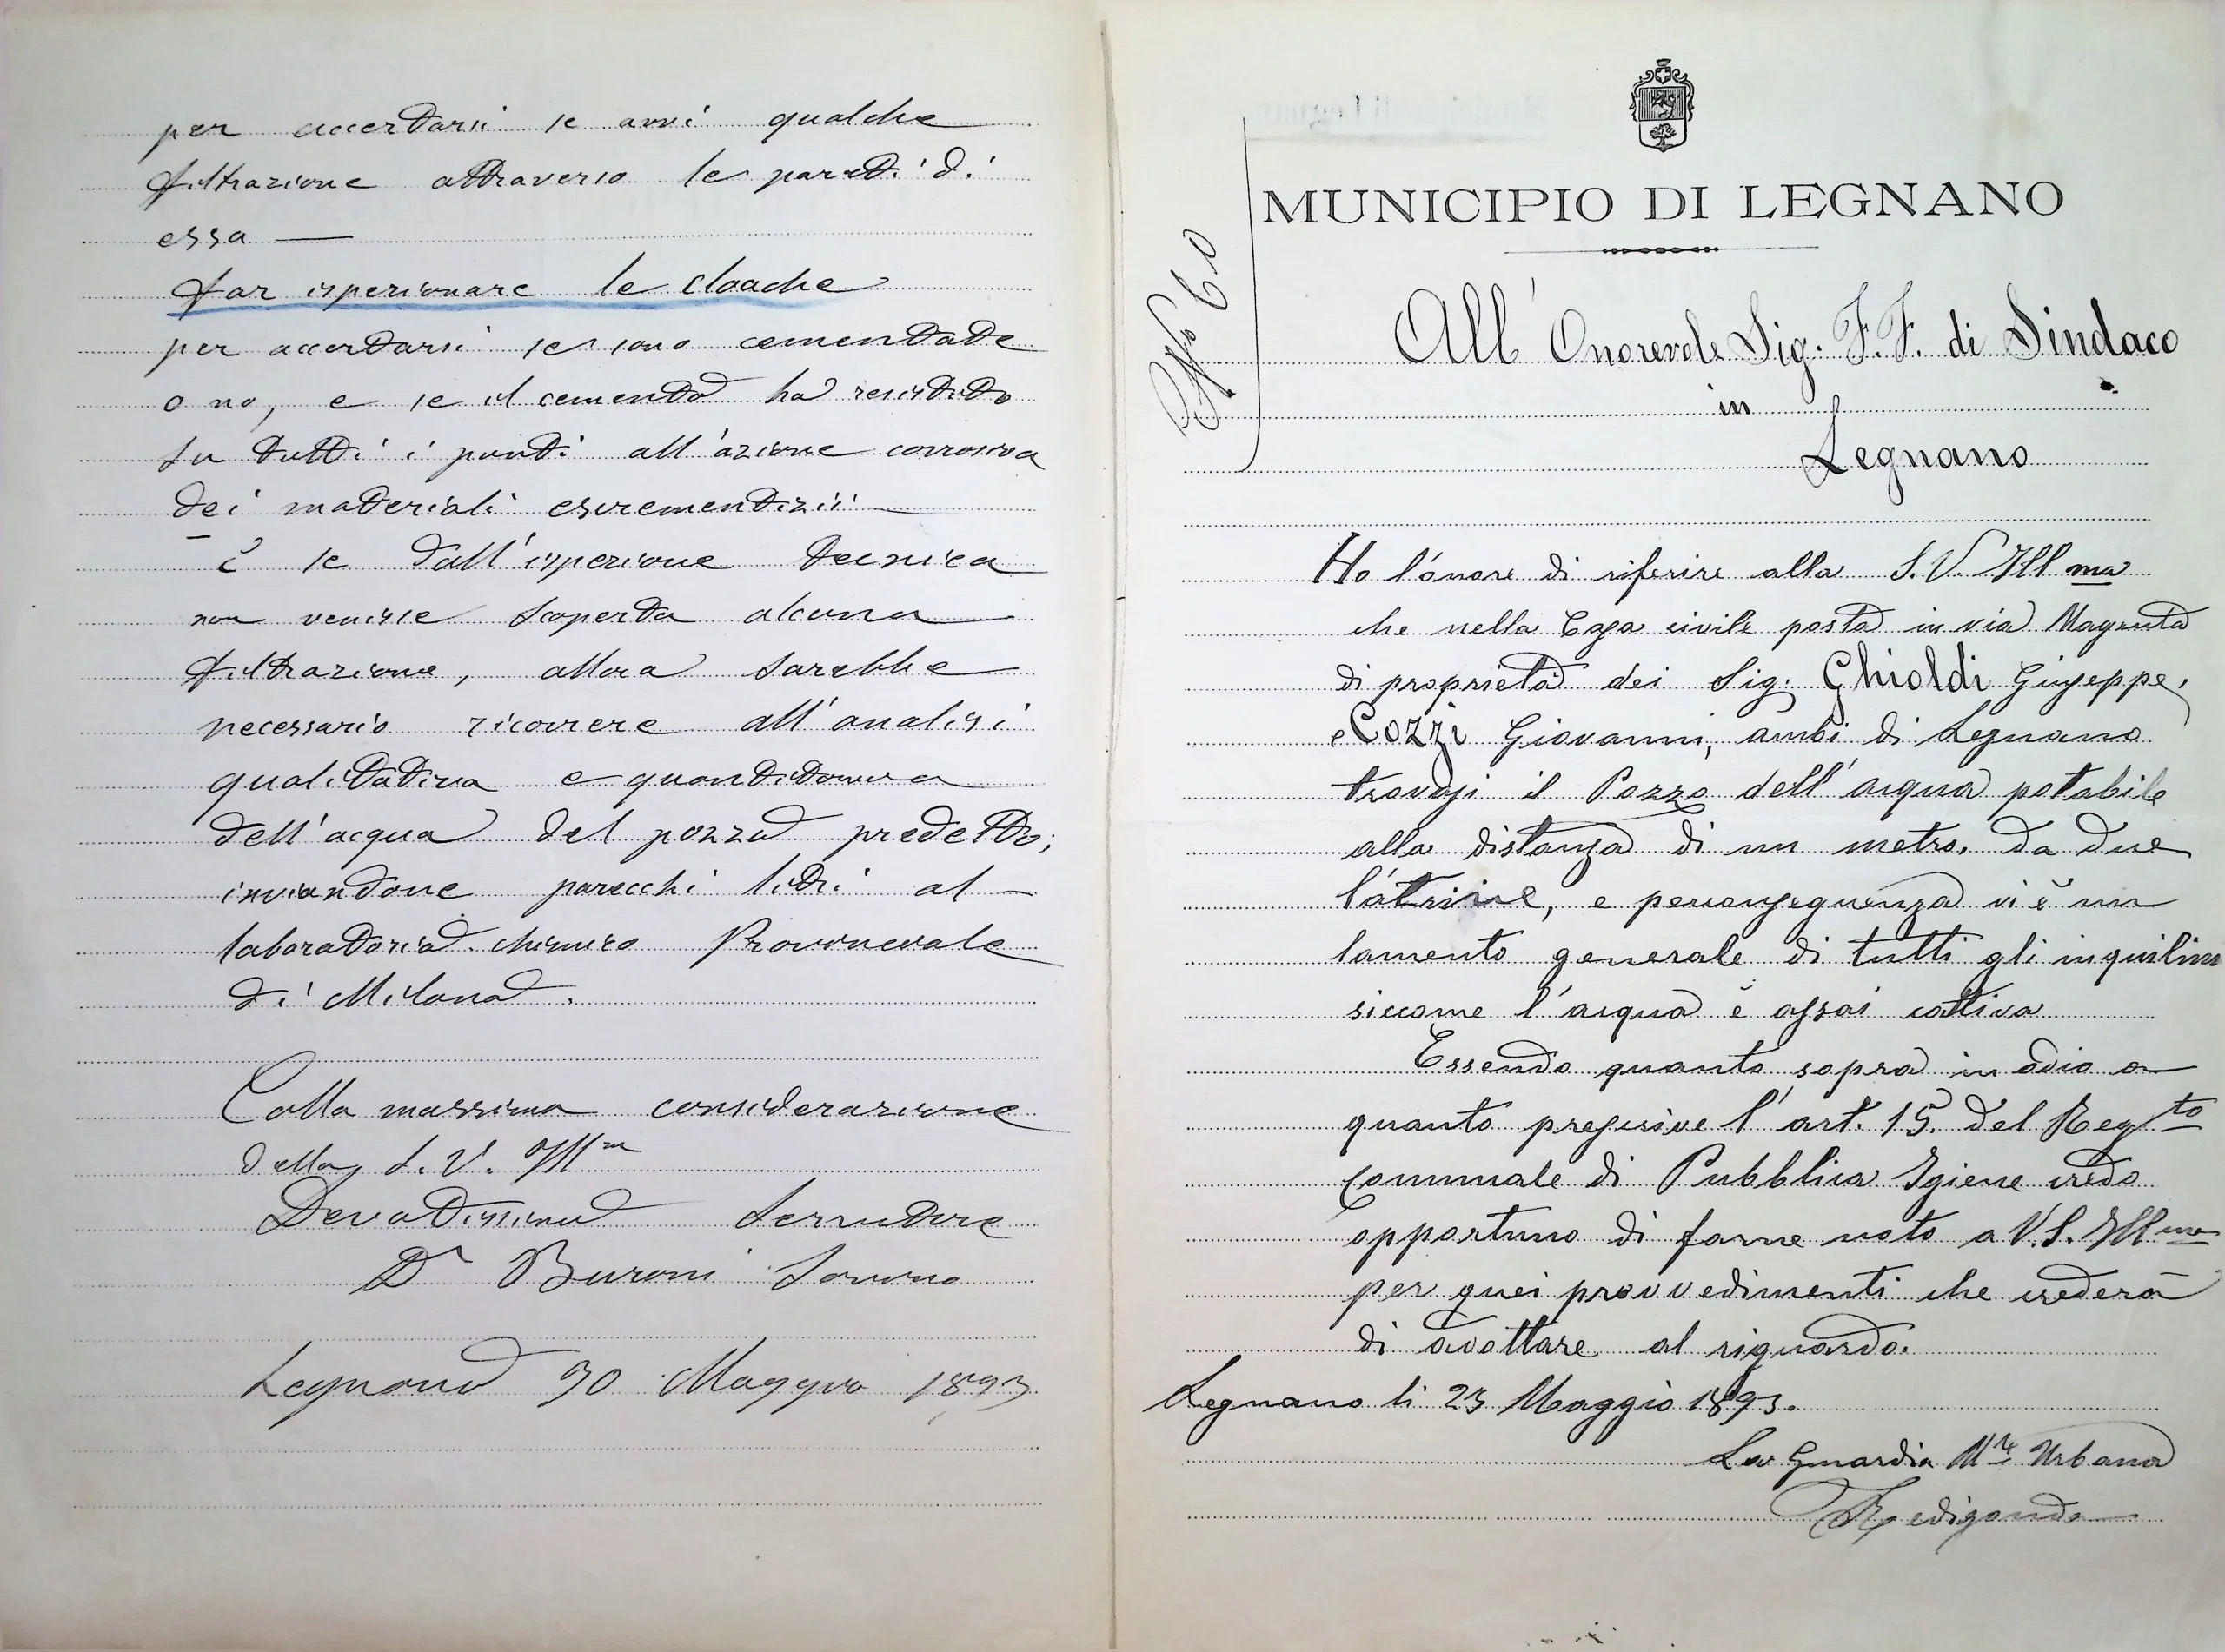 per accertarsi se avvi qualche
filtrazione attraverso le pareti di
essa —
far ispezionare le cloache
per accertarsi se sono cementate
o no, e se il cemento ha resistito
su tutti i punti all'azione corrosiva
dei materiali escrementizii —
E se dall'ispezione tecnica
non venisse scoperta alcuna
filtrazione, allora sarebbe
necessario ricorrere all'analisi
qualitativa e quantitativa
dell'acqua del pozzo predetto;
inviandone parecchi litri al
laboratorio chimico Provinciale
di Milano.
Colla massima considerazione
della S. V. Illma
Devotissimo Servitore
Dr Buroni
Legnano 30 Maggio 1893
MUNICIPIO DI LEGNANO
No 60
All'Onorevole Sig. F.F. di Sindaco
in
Legnano
Ho l'onore di riferire alla S. V. Illma
che nella Casa civile posta in via Magenta
di proprietà dei Sig. Ghioldi Giuseppe,
e Cozzi Giovanni, ambi di Legnano
trovasi il Pozzo dell'acqua potabile
alla distanza di un metro. da due
latrine, e perconseguenza vi è un
lamento generale di tutti gli inquilini
siccome l'acqua è assai cattiva
Essendo quanto sopra in odio a
quanto prescrive l'art. 15. del Regto
Comunale di Pubblica Igiene credo
opportuno di farne noto a V. S. Illma
per quei provvedimenti che crederà
di adottare al riguardo.
Legnano li 23 Maggio 1893.
La Guardia Mle Urbana
Redigonda